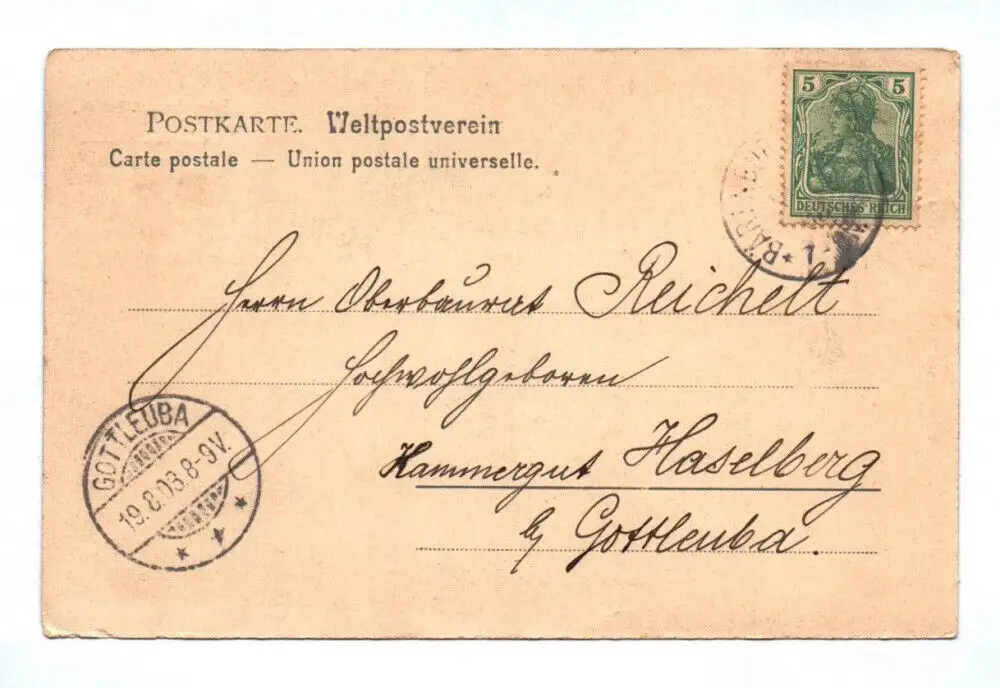 POSTKARTE. Weltpostverein
Carte postale — Union postale universelle.
5 5
DEUTSCHES REICH
Herrn Oberbaurat Reichelt
Hochwohlgeboren
Kammergut Haselberg
b/ Gottleuba.
GOTTLEUBA
19.8.03.8-9V.